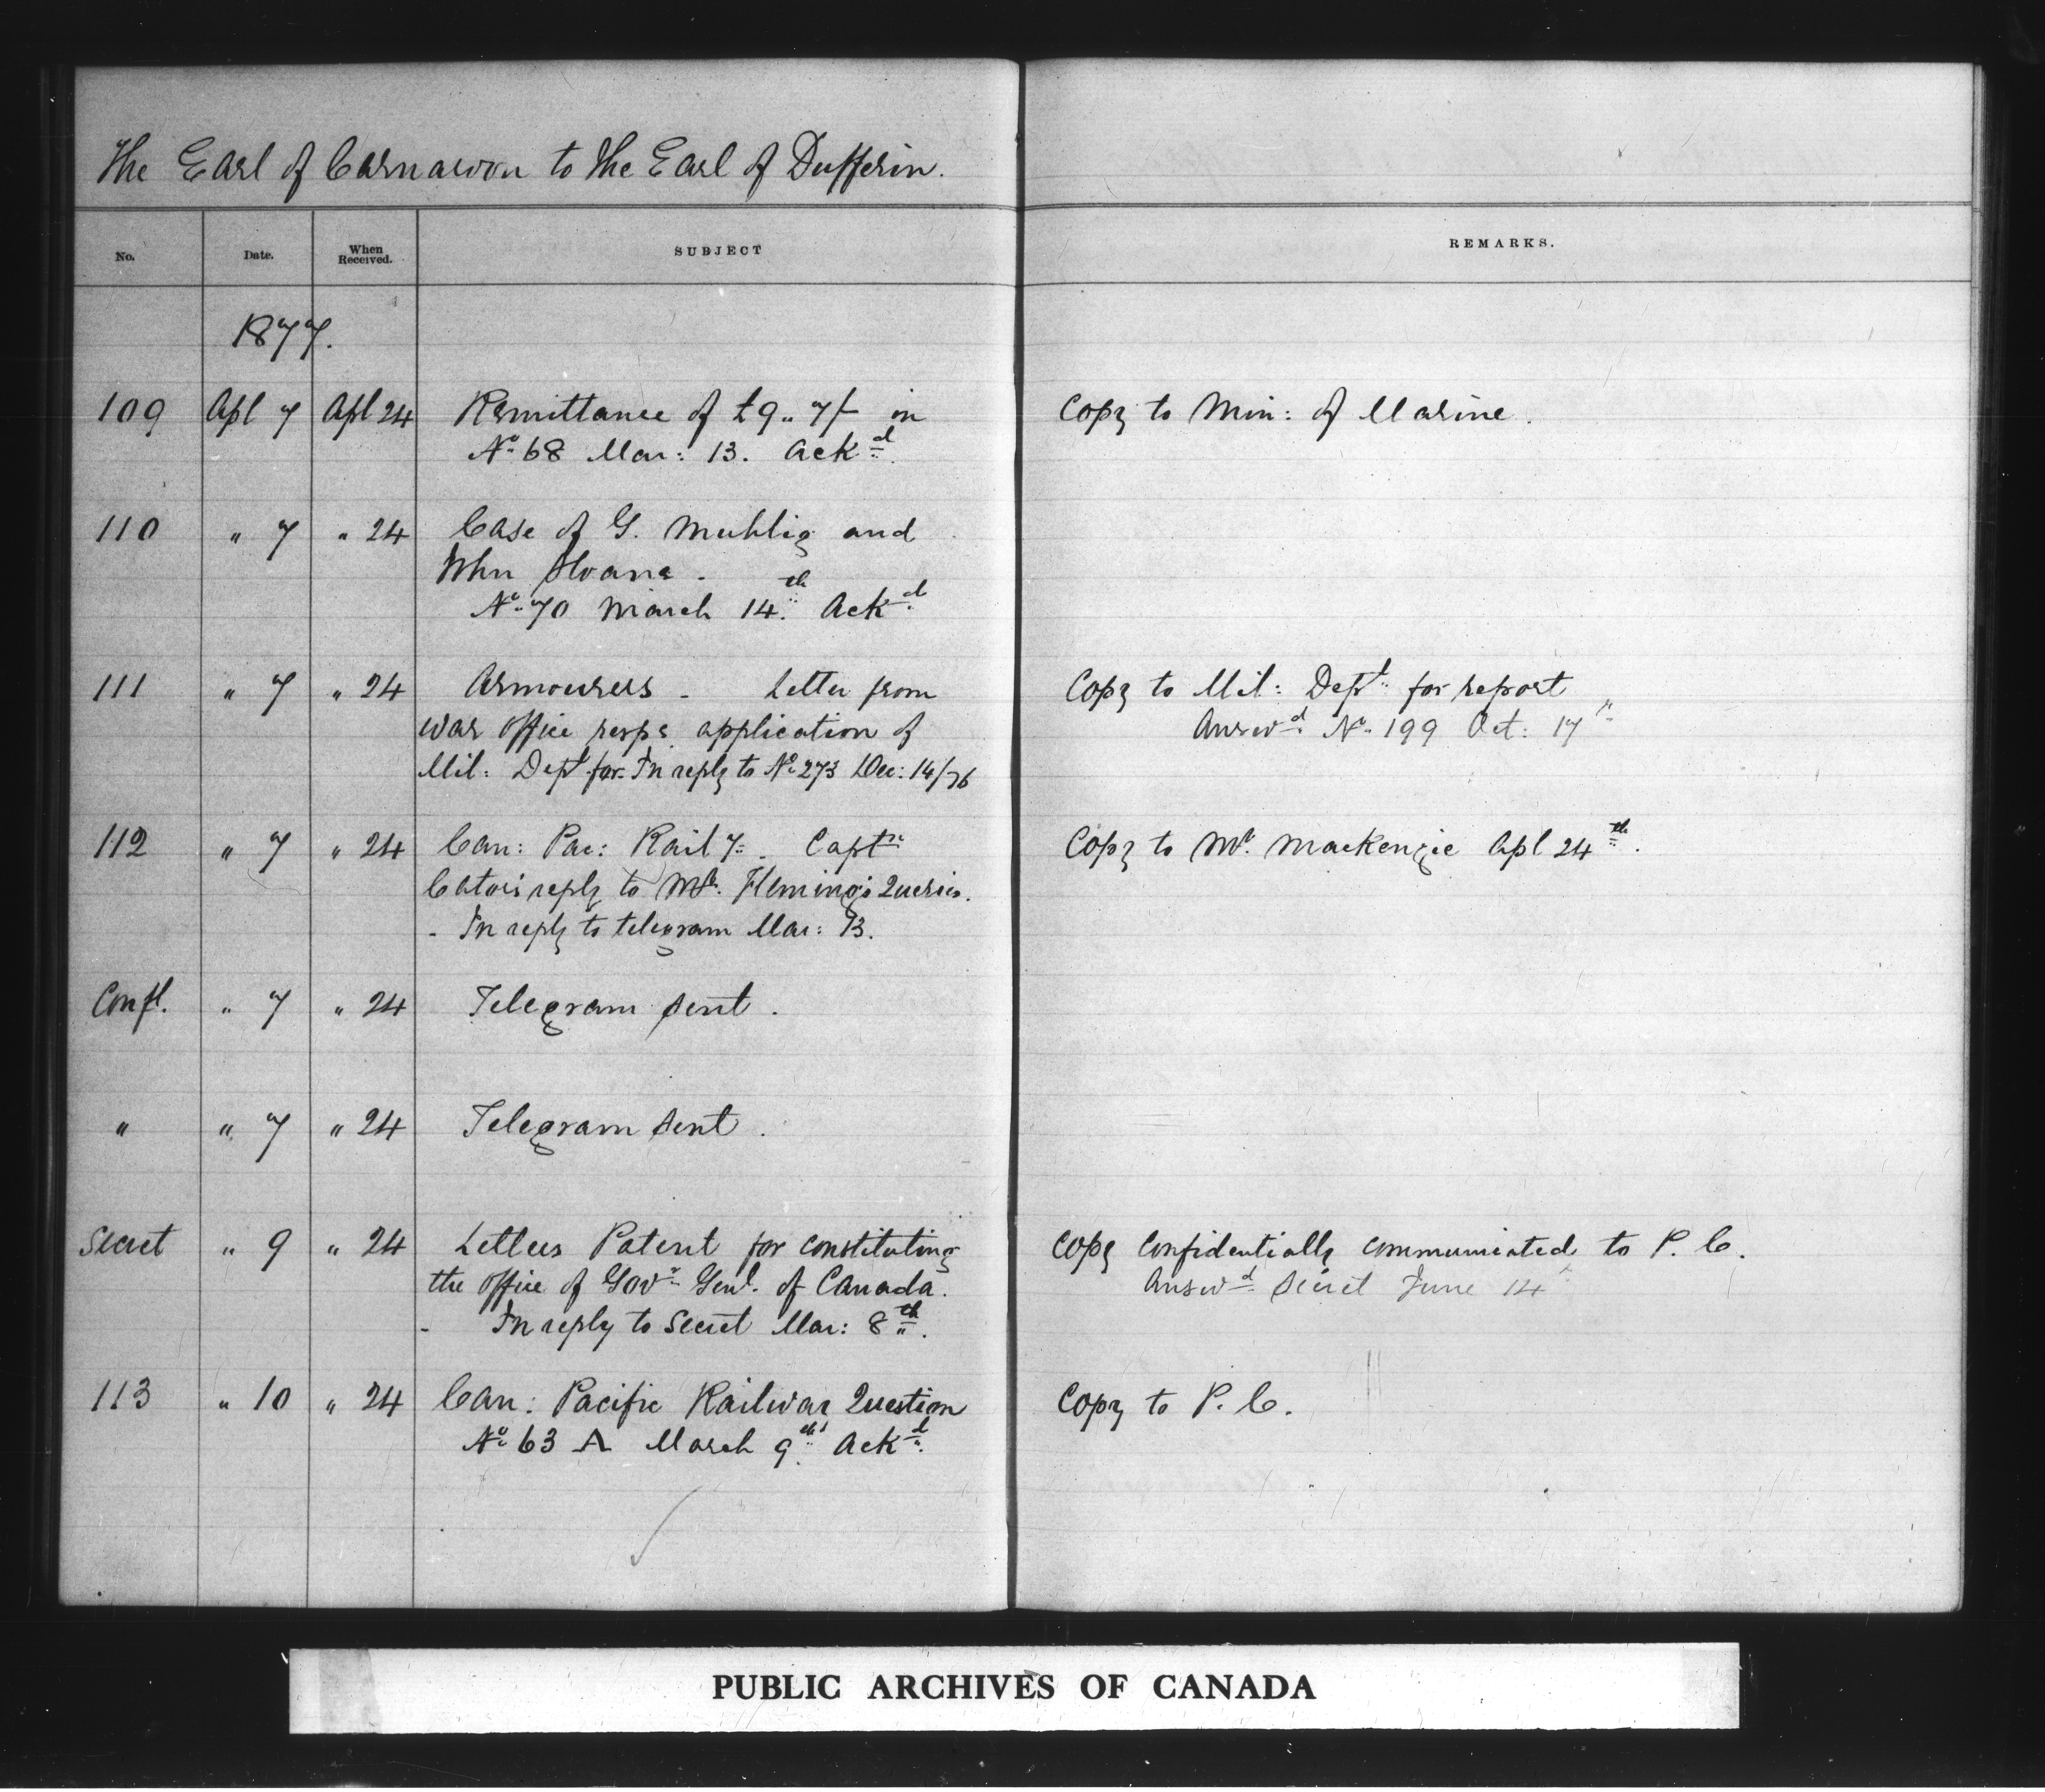 The Earl of Carnarvon to the Earl of Dufferin.
No. Date. When Received. SUBJECT REMARKS.
1877.
109 Apl 7 Apl 24 Remittance of £9.. 7/- in Copy to Min: of Marine.
No. 68 Mar: 13. Ackd.
110 " 7 " 24 Case of G. Muhlig and
John Sloane -
No. 70 March 14th. Ackd.
111 " 7 " 24 Armourers - Letter from Copy to Mil: Dept. for report
War Office resps application of Answd. No. 199 Oct: 17
Mil: Dept for. In reply to No. 273 Dec: 14/76
112 " 7 " 24 Can: Pac: Raily. - Captn. Copy to Mr. Mackenzie Apl 24th.
Cator's reply to Mr. Fleming's Queries.
- In reply to telegram Mar: 13.
Confl. " 7 " 24 Telegram sent.
" " 7 " 24 Telegram sent.
Secret " 9 " 24 Letters Patent for constituting Copy confidentially communicated to P. C.
the office of Govr. Genl. of Canada. Answd. Secret June 14
- In reply to Secret Mar: 8th.
113 " 10 " 24 Can: Pacific Railway Question Copy to P. C.
No. 63 A March 9th. Ackd.
PUBLIC ARCHIVES OF CANADA